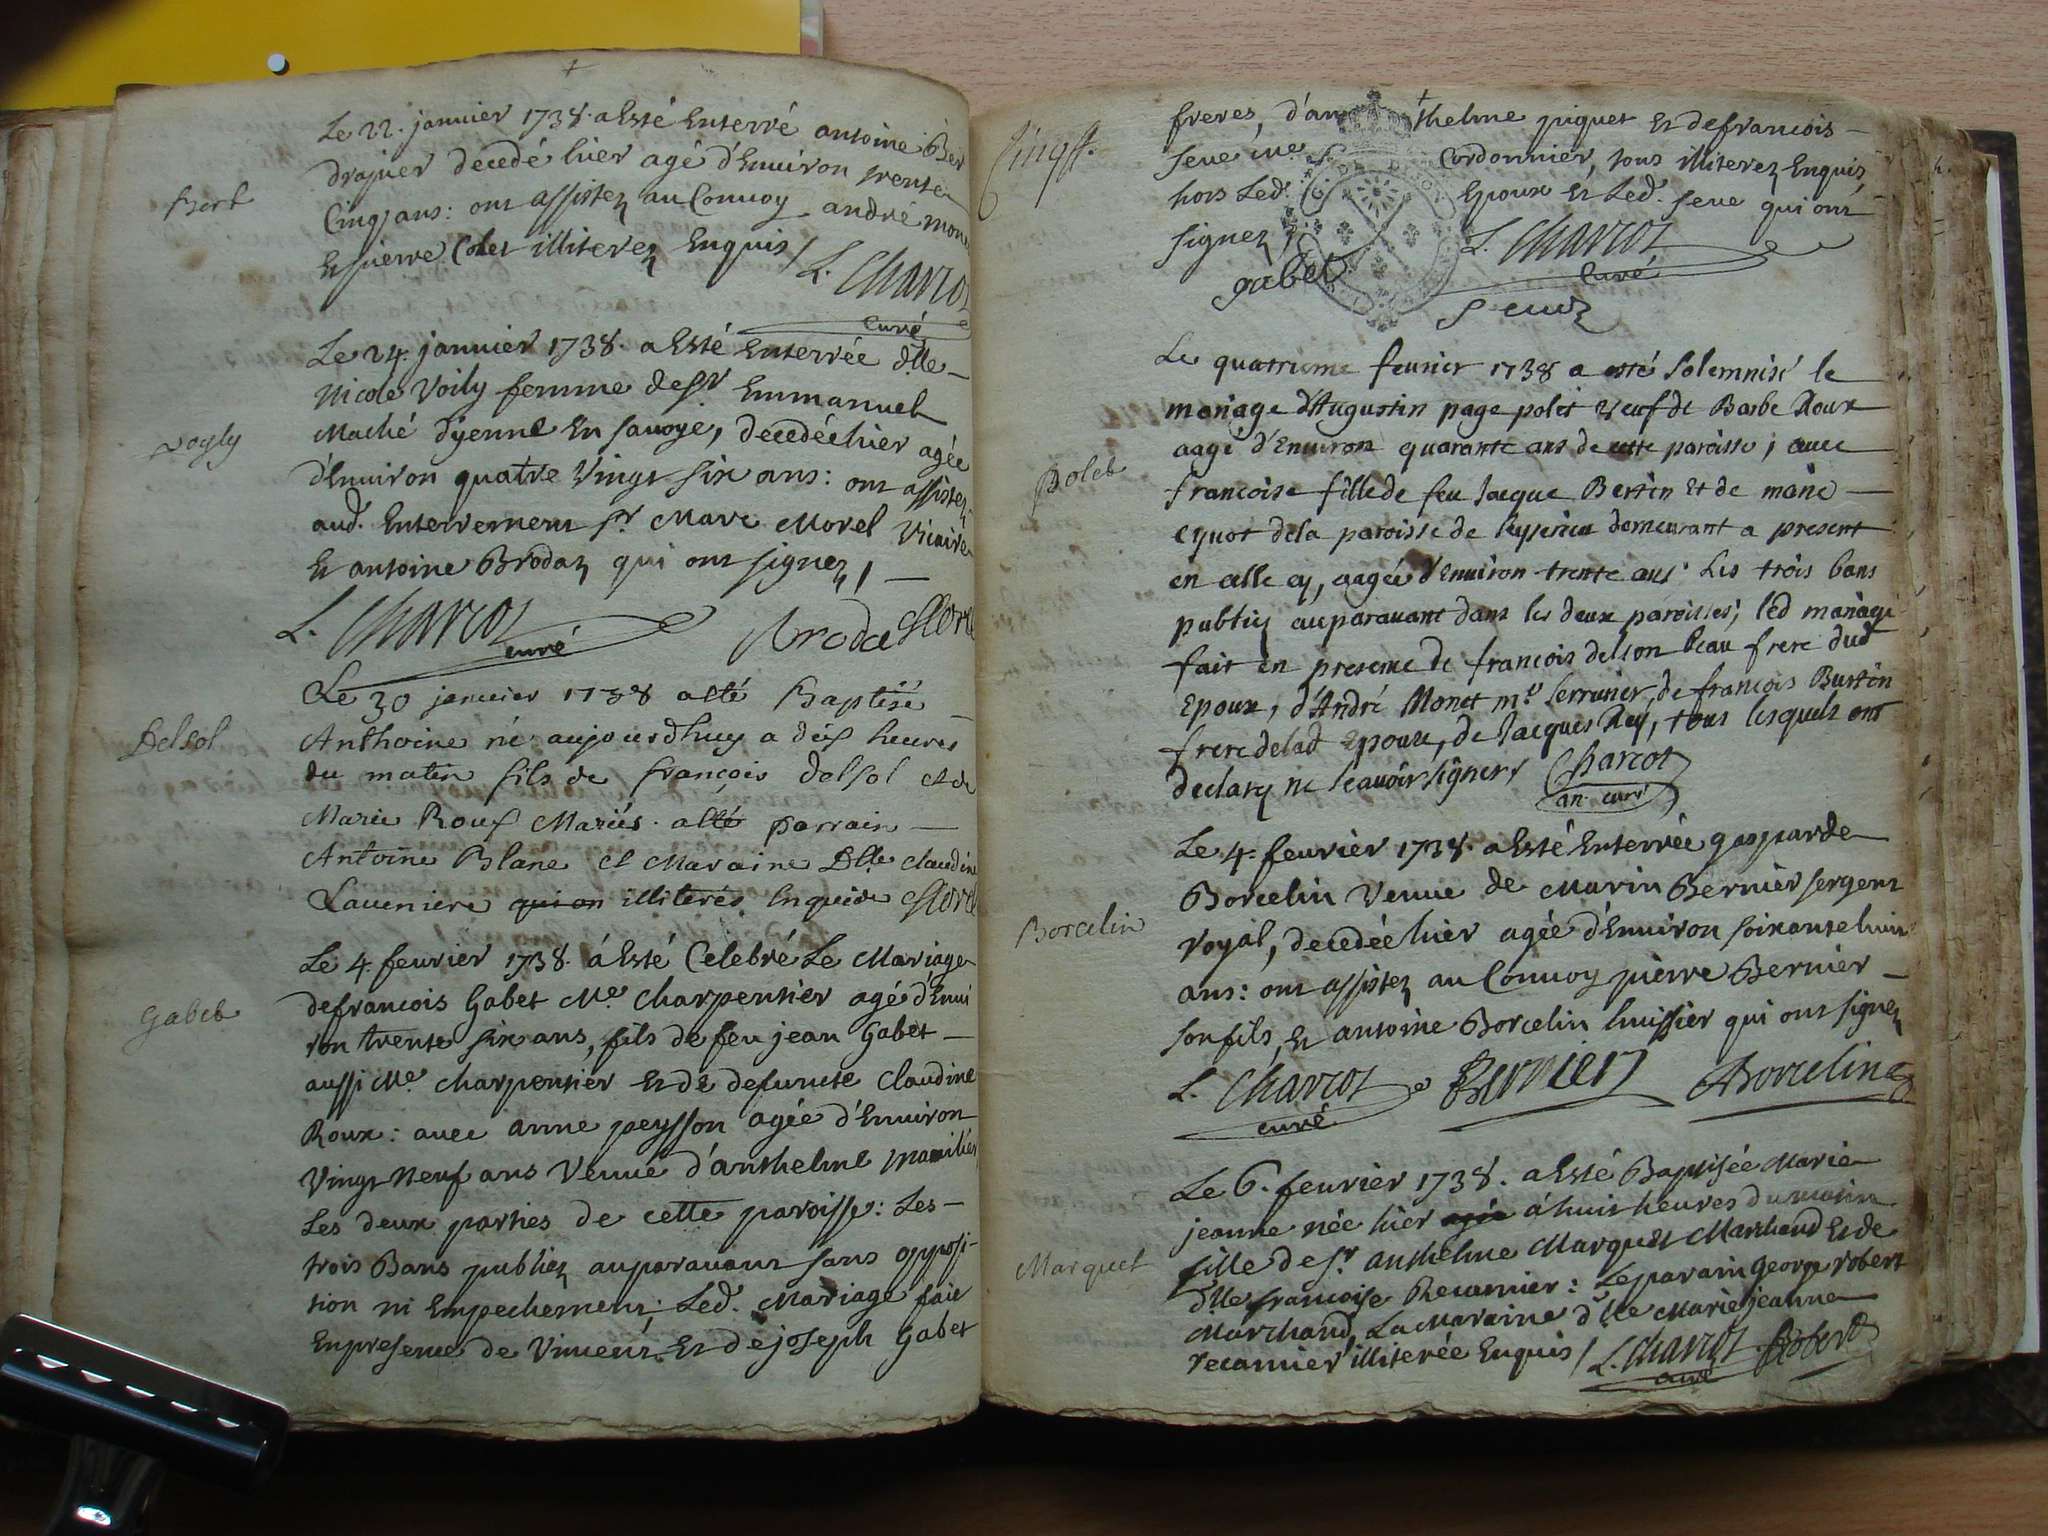 Bert
Le 22. janvier 1738. a Esté Enterré antoine Ber
drapier decedé hier agé d'Environ trente
Cinq ans: ont assistez au Convoy andré mone
Et pierre Colet illiterez Enquis /
L. Charcot
curé
Voyly
Le 24. janvier 1738. a Esté Enterrée d.lle
Nicole Voily femme de Sr Emmanuel
Maché d'yenne En Savoye, decedée hier agée
d'Environ quatre Vingt six ans: ont assistez
aud. Enterrement Sr Marc Morel Vicaire
Et antoine Brodaz qui ont signez, /
L. Charcot Broda Morel
curé
Delsol
Le 30 janvier 1738 a été Baptisé
Anthoine né aujourdhuy a dix heures
du matin fils de françois delsol et de
Marie Roux Mariés. a été parrain
Antoine Blanc et Maraine Dlle Claudine
Laveniere qui on illiterés Enquis Morel
Gabet
Le 4. fevrier 1738. á Esté Celebré Le Mariage
de francois Gabet Me Charpentier agé d'Envi
ron trente six ans, fils de feu jean Gabet
aussi Me. charpentier Et de defuncte Claudine
Roux: avec anne peysson agée d'Environ
Vingt Neuf ans Veuve d'anthelme
Les deux parties de cette paroisse: Les
trois Bans publiez auparavant sans opposi-
tion ni Empechement; Led. Mariage fait
En presence de Vincent Et de joseph Gabet
Cinq f.
freres, d'an thelme piquet Et de francois
Seve me Cordonnier, tous illiterez Enquis,
hors Led. Epoux Et Led. Seve qui ont
signez /
L. Charcot
gabet curé
Seve
Polet
Le quatrieme fevrier 1738 a esté Solemnisé le
mariage d'Augustin page polet veuf de Barbe Roux
aagé d'Environ quarante ans de cette paroisse, avec
francoise fille de feu Jacque Bertin Et de marie
cyvot dela paroisse de leyssieu demeurant a present
en celle cy, aagée d'Environ trente ans Les trois bans
publiez auparavant dans les deux paroisses; led mariage
fait en presence de francois delson beau frere dud
Epoux, d'André Monet me serrurier, de francois Burtin
frere delad Epouse, de Jacques Rey, tous lesquels ont
declarez ne scavoir signer / Charcot
an. curé
Borcelin
Le 4. fevrier 1738. a Esté Enterrée gasparde
Borcelin Veuve de Marin Bernier sergent
royal, decedée hier agée d'Environ soixante huit
ans: ont assistez au Convoy pierre Bernier
son fils, Et antoine Borcelin huissier qui ont signez
L. Charcot Bernier Borcelin
curé
Marquet
Le 6. fevrier 1738. a Esté Baptisée Marie
jeanne née hier agée á huit heures du matin
fille de Sr. anthelme Marquet Marchand Et de
d.lle francoise Recamier: Le parain george robert
Marchand, La Maraine d.lle Marie jeanne
recamier illiterée Enquis / L. Charcot Robert
curé